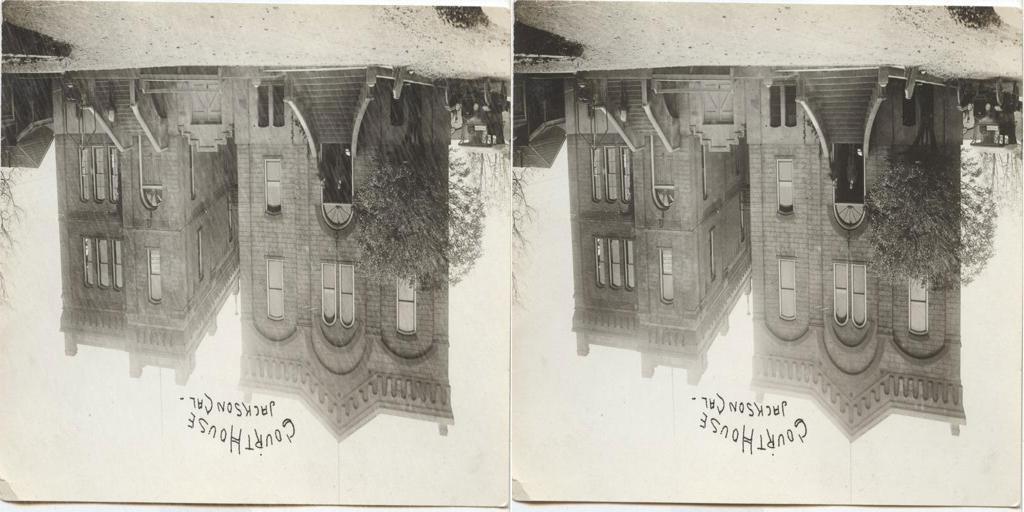 CourtHouse
Jackson Cal.
CourtHouse
Jackson Cal.